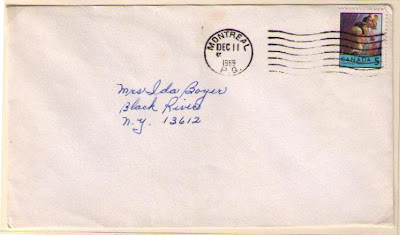 MONTREAL
DEC 11
1969
P.Q.
CANADA 5
Mrs Ida Boyer
Black River
N.Y. 13612